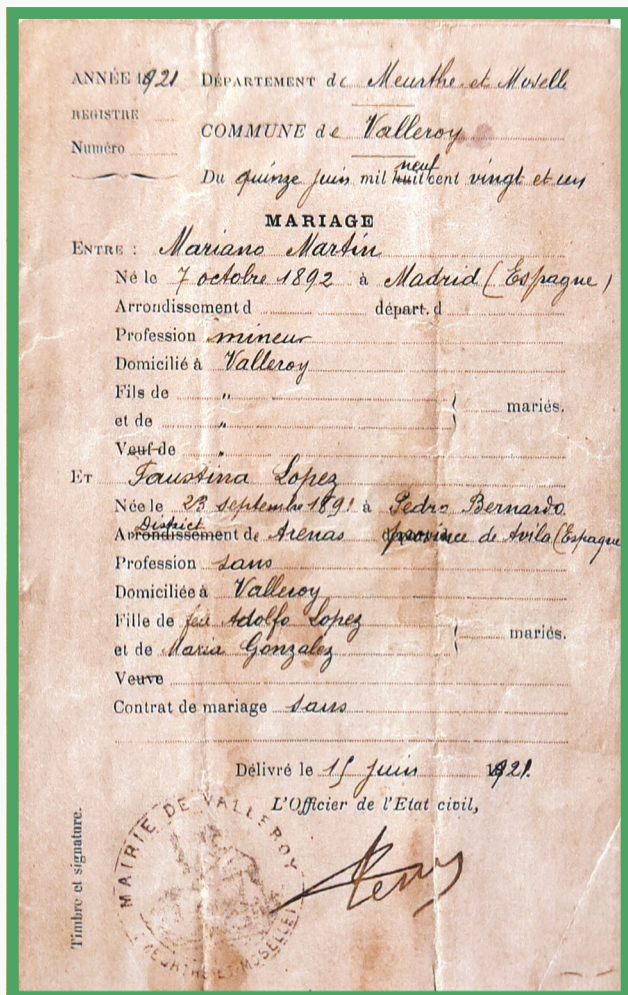 ANNÉE 1921 DÉPARTEMENT de Meurthe et Moselle
REGISTRE
COMMUNE de Valleroy
Numéro
Du quinze juin mil huit neuf cent vingt et un
MARIAGE
ENTRE : Mariano Martin
Né le 7 octobre 1892 à Madrid (Espagne)
Arrondissement d départ. d
Profession mineur
Domicilié à Valleroy
Fils de "
mariés.
et de "
Veuf de "
ET Faustina Lopez
Née le 23 septembre 1891 à Pedro Bernardo
District
Arrondissement de Arenas province de Avila (Espagne
Profession sans
Domiciliée à Valleroy
Fille de feu Adolfo Lopez
mariés.
et de Maria Gonzalez
Veuve
Contrat de mariage sans
Délivré le 15 juin 1921.
L'Officier de l'Etat civil,
Timbre et signature.
MAIRIE DE VALLEROY
(MEURTHE-ET-MOSELLE)